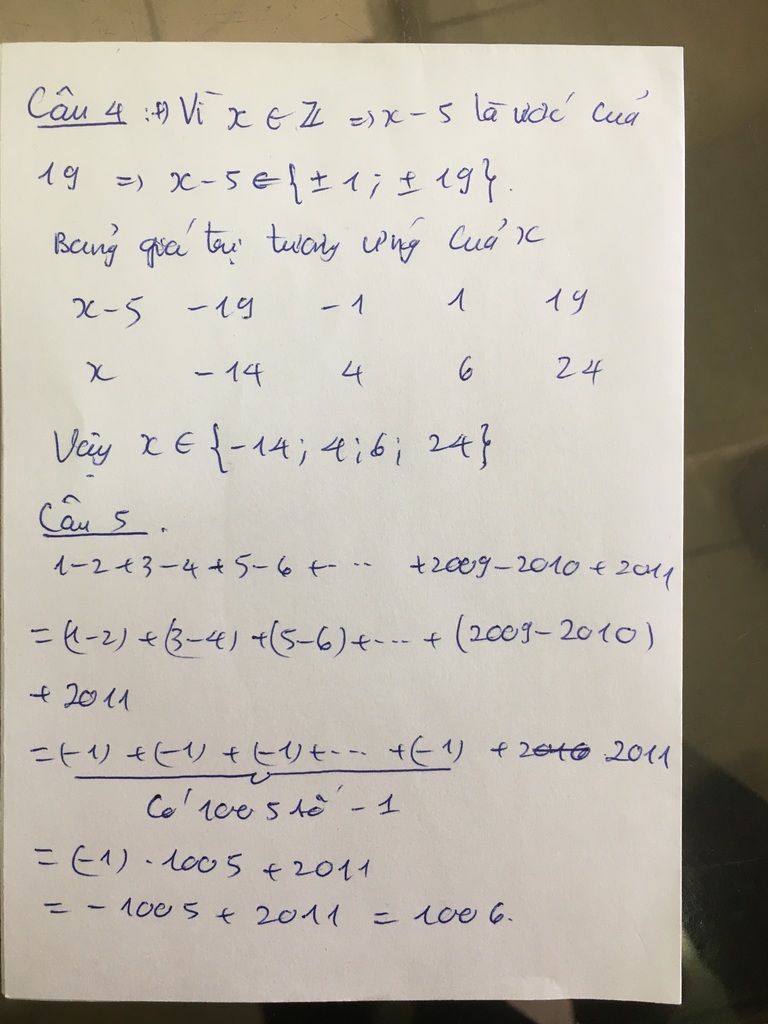 Câu 4 : +) Vì x ∈ Z => x - 5 là ước của
19 => x - 5 ∈ {± 1 ; ± 19}.
Bảng giá trị tương ứng của x
x-5 -19 -1 1 19
x -14 4 6 24
Vậy x ∈ {-14; 4; 6; 24}
Câu 5 .
1-2+3-4+5-6+... +2009-2010+2011
= (1-2) + (3-4) + (5-6) + ... + (2009-2010)
+ 2011
= (-1) + (-1) + (-1) + ... + (-1) + 2010 2011
Có 1005 số -1
= (-1) . 1005 + 2011
= - 1005 + 2011 = 1006.